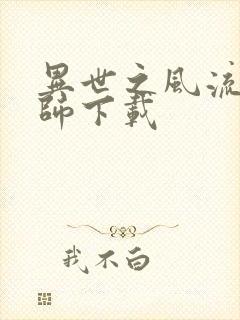 異世之風流
師下載
我不白